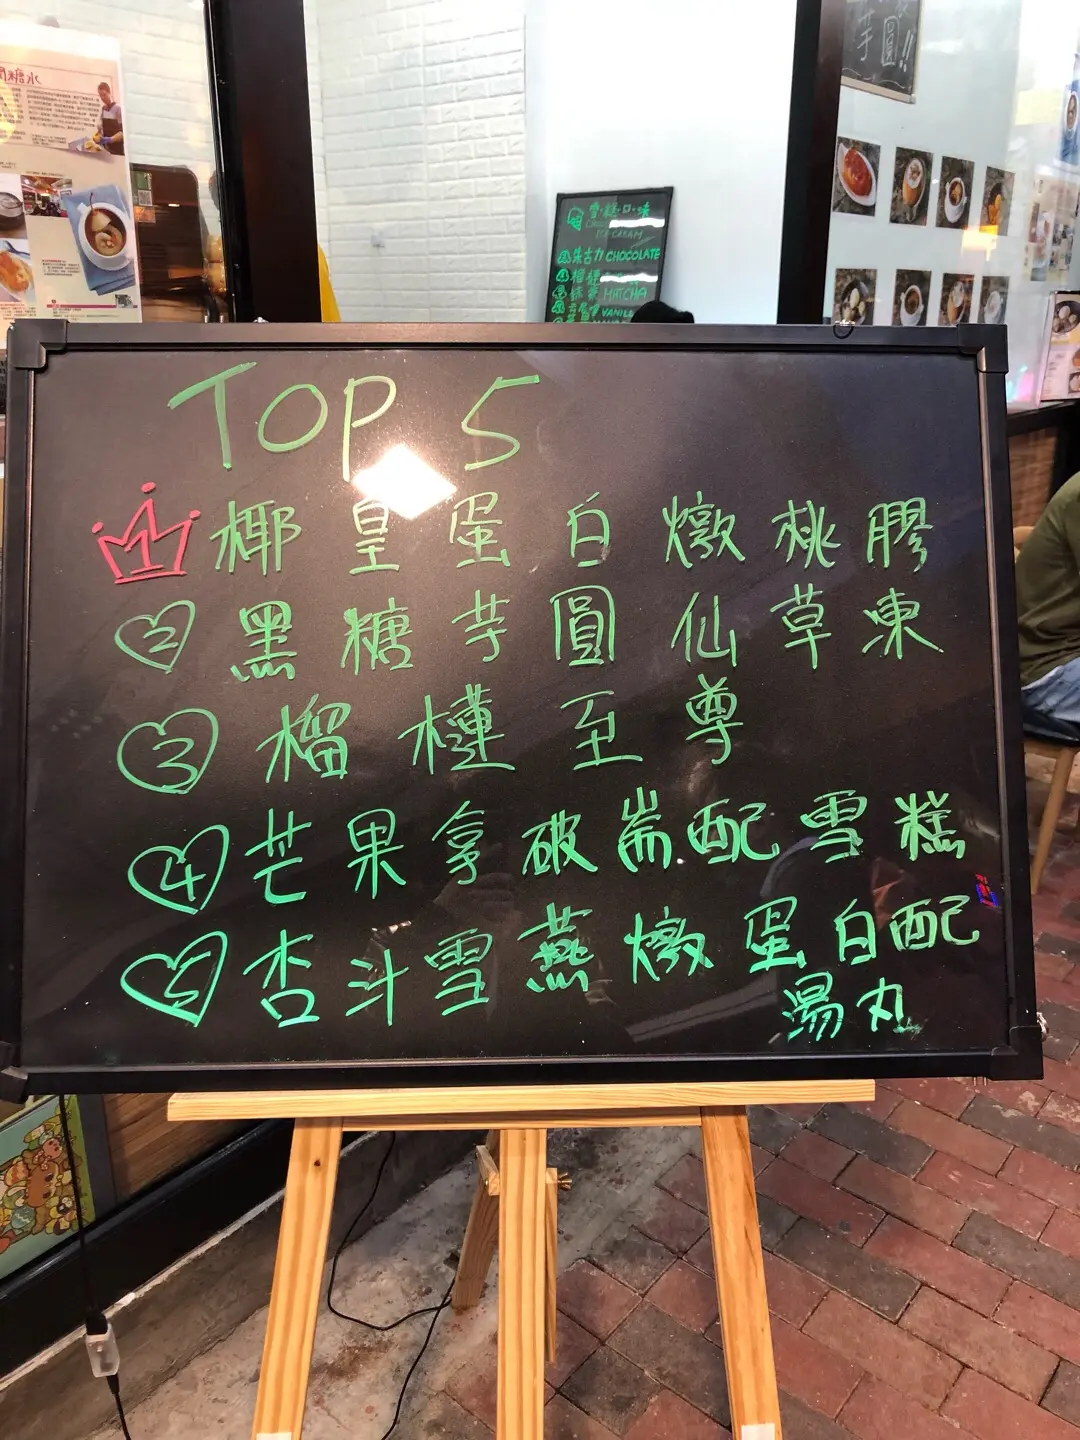 閒糖水
芋圓!!
雪·糕·口·味
ICE-CREAM
朱古力 CHOCOLATE
榴槤
抹茶 MATCHA
VANILL
TOP 5
1 椰皇蛋白燉桃膠
2 黑糖芋圓仙草凍
3 榴槤至尊
4 芒果拿破崙配雪糕
5 杏汁雪燕燉蛋白配
湯丸